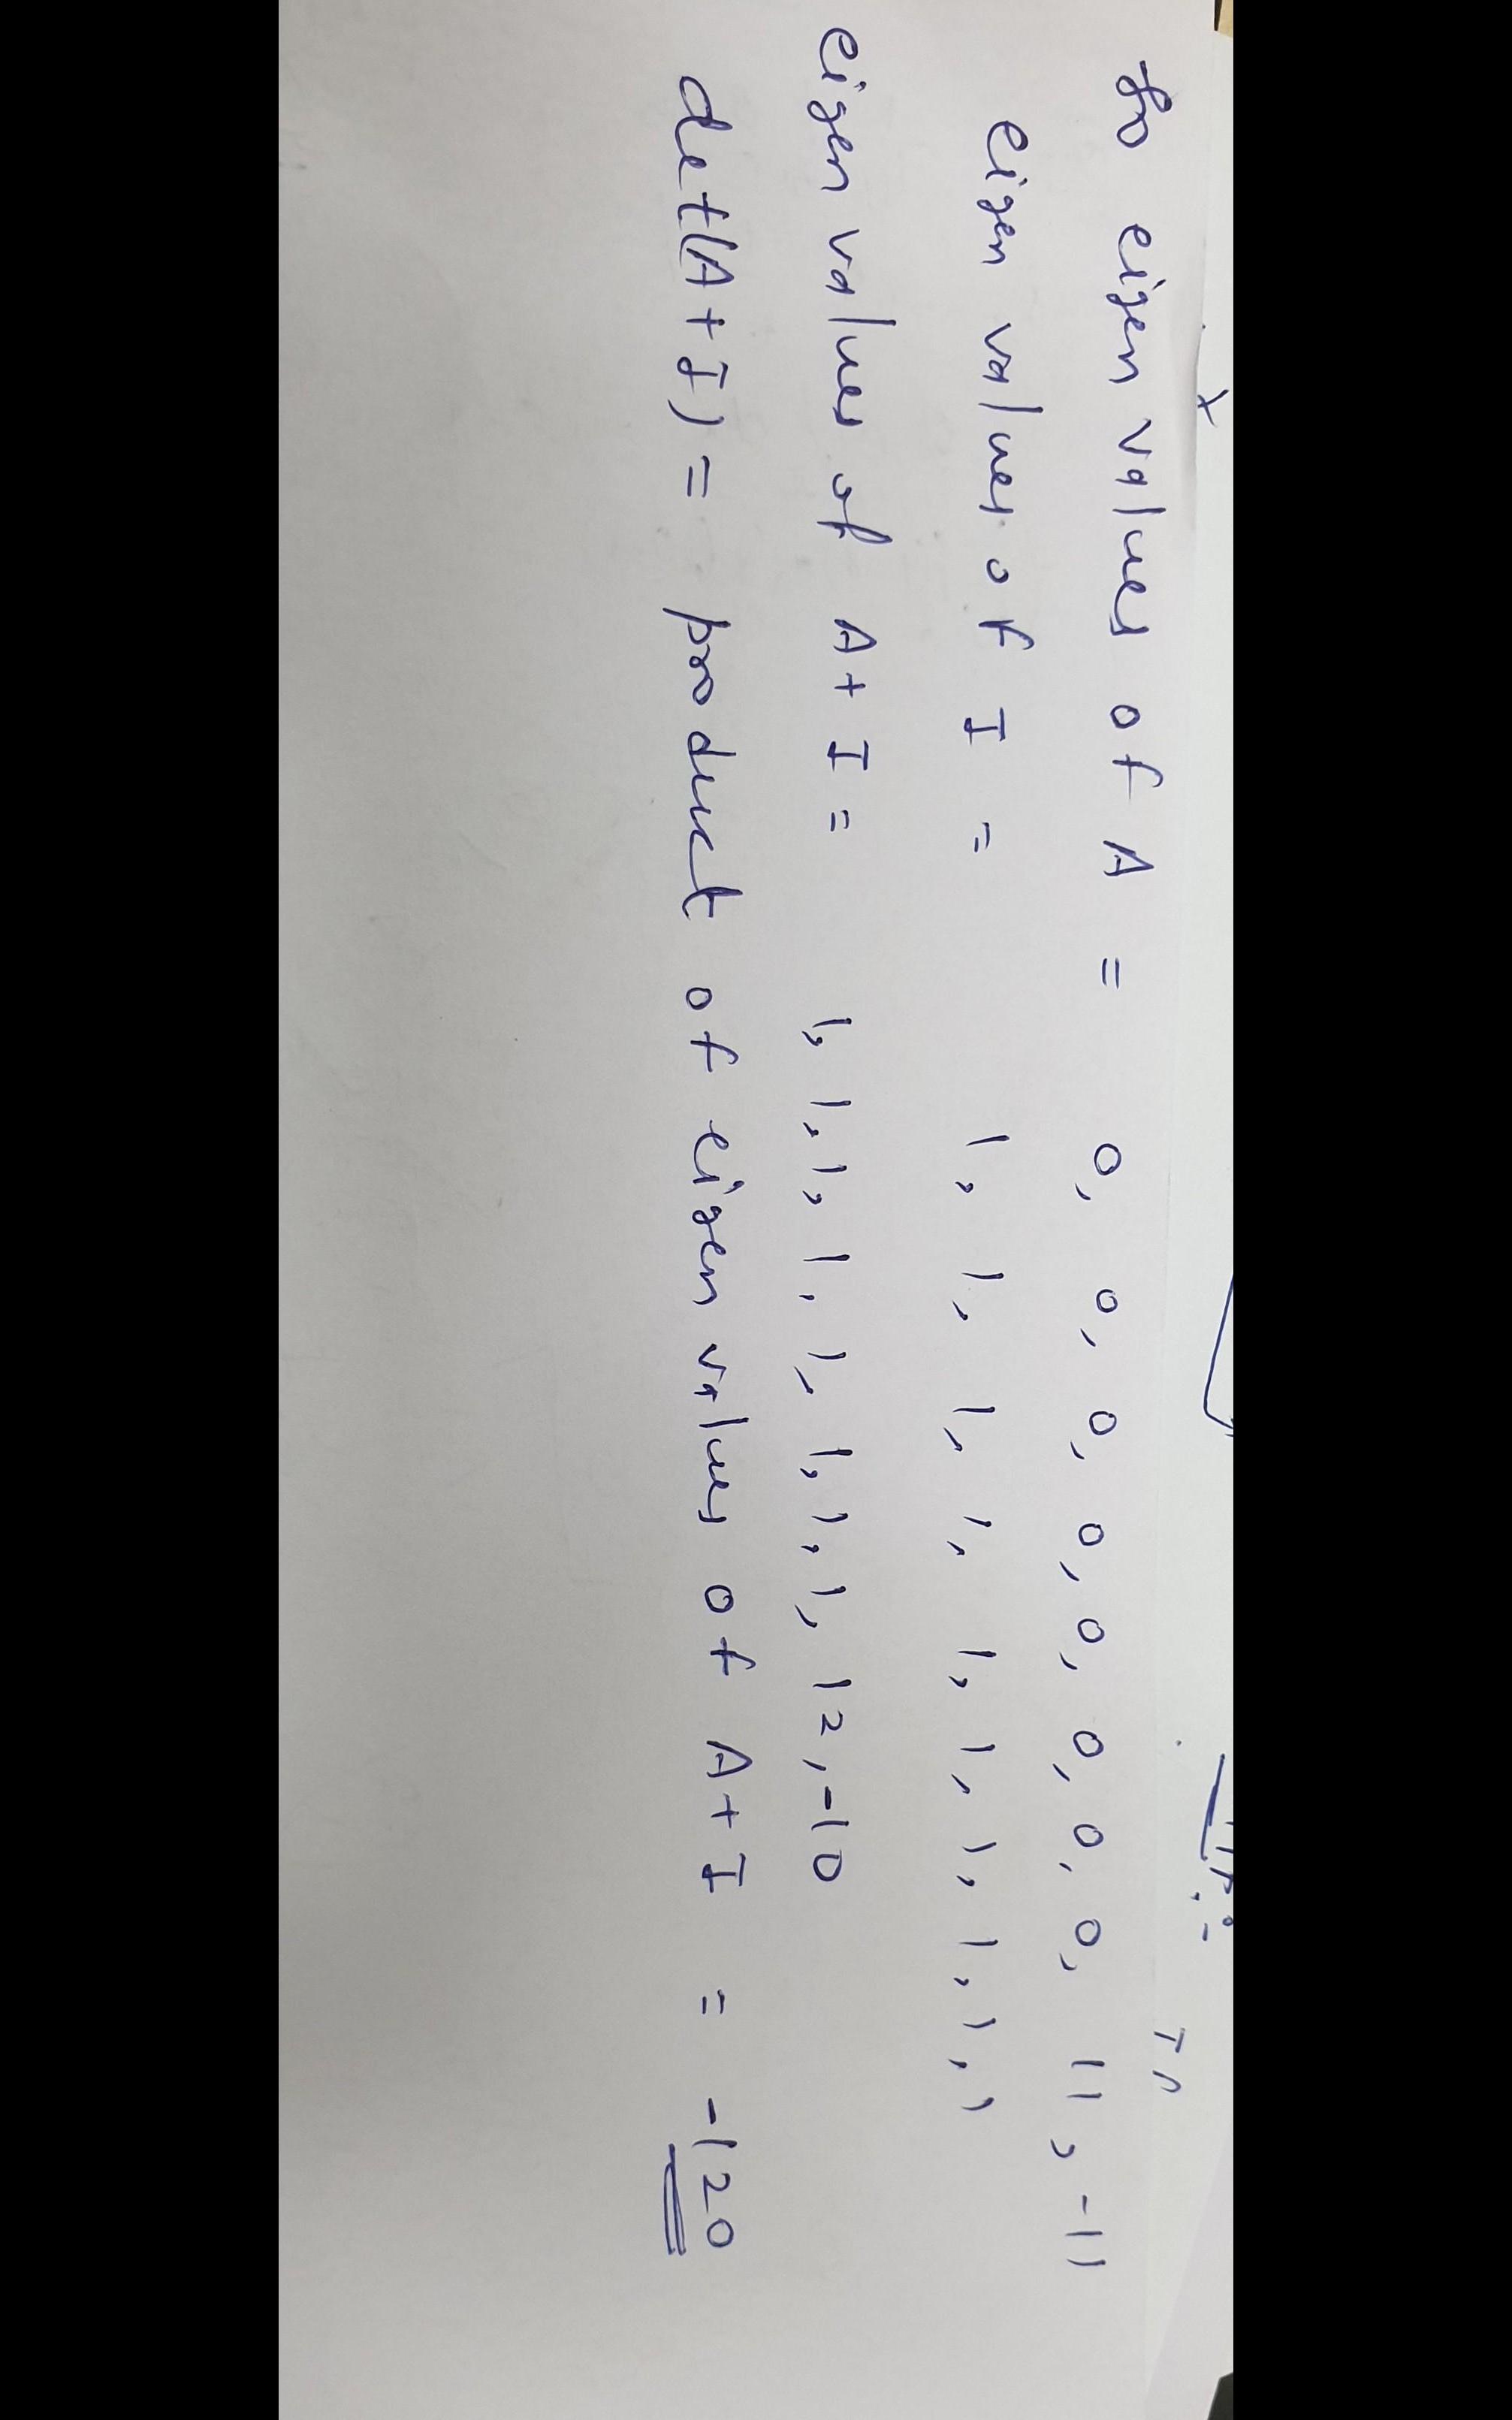 So eigen values of A = 0, 0, 0, 0, 0, 0, 0, 0, 11, -11
eigen values of I = 1, 1, 1, 1, 1, 1, 1, 1, 1, 1
eigen values of A+I = 1, 1, 1, 1, 1, 1, 1, 1, 12, -10
det(A+I) = product of eigen values of A+I = -120